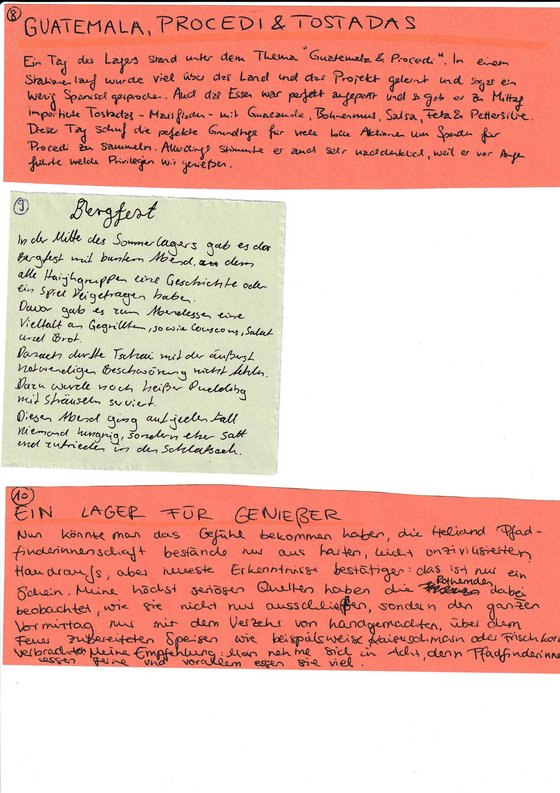 8
GUATEMALA, PROCEDI & TOSTADAS
Ein Tag des Lagers stand unter dem Thema "Guatemala & Procedi". In einem
Stationenlauf wurde viel über das Land und das Projekt gelernt und sogar ein
wenig Spanisch gesprochen. Auch das Essen war perfekt angepasst und so gab es zu Mittag
importierte Tostadas - Maisfladen - mit Guacamole, Bohnenmus, Salsa, Feta & Petersilie.
Dieser Tag schuf die perfekte Grundlage für viele tolle Aktionen um Spenden für
Procedi zu sammeln. Allerdings stimmte er auch sehr nachdenklich, weil er vor Augen
führte welche Privilegien wir genießen.
9
Bergfest
In der Mitte des Sommerlagers gab es das
Bergfest mit buntem Abend, an dem
alle Haijkgruppen eine Geschichte oder
ein Spiel beigetragen haben.
Davor gab es zum Abendessen eine
Vielfalt an Gegrilltem, sowie Couscous, Salat
und Brot.
Danach durfte Tschai mit der äußerst
notwendigen Beschwörung nicht fehlen.
Dazu wurde noch heißer Pudding
mit Streuseln serviert.
Diesen Abend ging auf jeden Fall
niemand hungrig, sondern eher satt
und zufrieden in den Schlafsack.
10
EIN LAGER FÜR GENIEßER
Nun könnte man das Gefühl bekommen haben, die Heliand Pfad-
finderinnenschaft bestände nur aus harten, leicht unzivilisierten
Haudraufs, aber neueste Erkenntnisse bestätigen: das ist nur ein
Schein. Meine höchst seriösen Quellen haben die Rothemden dabei
beobachtet, wie sie nicht nur ausschließen, sondern den ganzen
Vormittag nur mit dem Verzehr von handgemachten, über dem
Feuer zubereiteten Speisen wie beispielsweise Kaiserschmarrn oder Frischkorn
verbrachten. Meine Empfehlung: Man nehme sich in Acht, denn Pfadfinderinne
essen gerne und vorallem essen sie viel.